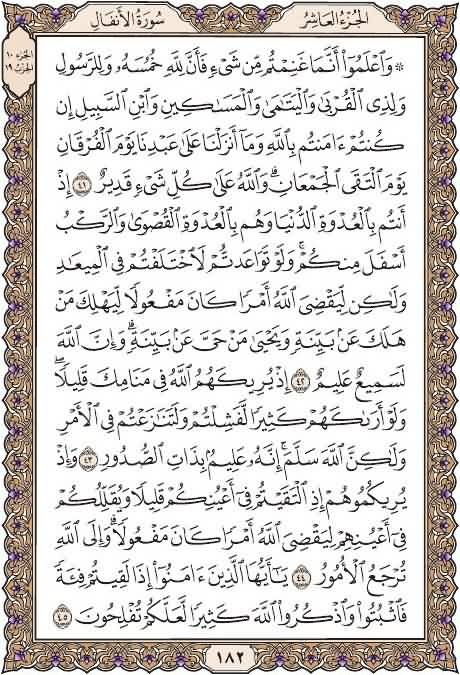 سُورَةُ الأَنفَالِ
الجُزءُ العَاشِرُ
الجزء ١٠
الحزب ١٩
۞ وَاعْلَمُوٓا۟ أَنَّمَا غَنِمْتُم مِّن شَىْءٍ فَأَنَّ لِلَّهِ خُمُسَهُۥ وَلِلرَّسُولِ
وَلِذِى الْقُرْبَىٰ وَالْيَتَٰمَىٰ وَالْمَسَٰكِينِ وَابْنِ السَّبِيلِ إِن
كُنتُمْ ءَامَنتُم بِاللَّهِ وَمَآ أَنزَلْنَا عَلَىٰ عَبْدِنَا يَوْمَ الْفُرْقَانِ
يَوْمَ الْتَقَى الْجَمْعَانِ ۗ وَاللَّهُ عَلَىٰ كُلِّ شَىْءٍ قَدِيرٌ ٤١ إِذْ
أَنتُم بِالْعُدْوَةِ الدُّنْيَا وَهُم بِالْعُدْوَةِ الْقُصْوَىٰ وَالرَّكْبُ
أَسْفَلَ مِنكُمْ ۚ وَلَوْ تَوَاعَدتُّمْ لَاخْتَلَفْتُمْ فِى الْمِيعَٰدِ
وَلَٰكِن لِّيَقْضِىَ اللَّهُ أَمْرًا كَانَ مَفْعُولًا لِّيَهْلِكَ مَنْ
هَلَكَ عَنۢ بَيِّنَةٍ وَيَحْيَىٰ مَنْ حَىَّ عَنۢ بَيِّنَةٍ ۗ وَإِنَّ اللَّهَ
لَسَمِيعٌ عَلِيمٌ ٤٢ إِذْ يُرِيكَهُمُ اللَّهُ فِى مَنَامِكَ قَلِيلًا ۖ
وَلَوْ أَرَىٰكَهُمْ كَثِيرًا لَّفَشِلْتُمْ وَلَتَنَٰزَعْتُمْ فِى الْأَمْرِ
وَلَٰكِنَّ اللَّهَ سَلَّمَ ۗ إِنَّهُۥ عَلِيمٌۢ بِذَاتِ الصُّدُورِ ٤٣ وَإِذْ
يُرِيكُمُوهُمْ إِذِ الْتَقَيْتُمْ فِىٓ أَعْيُنِكُمْ قَلِيلًا وَيُقَلِّلُكُمْ
فِىٓ أَعْيُنِهِمْ لِيَقْضِىَ اللَّهُ أَمْرًا كَانَ مَفْعُولًا ۗ وَإِلَى اللَّهِ
تُرْجَعُ الْأُمُورُ ٤٤ يَٰٓأَيُّهَا الَّذِينَ ءَامَنُوٓا۟ إِذَا لَقِيتُمْ فِئَةً
فَاثْبُتُوا۟ وَاذْكُرُوا۟ اللَّهَ كَثِيرًا لَّعَلَّكُمْ تُفْلِحُونَ ٤٥
١٨٢